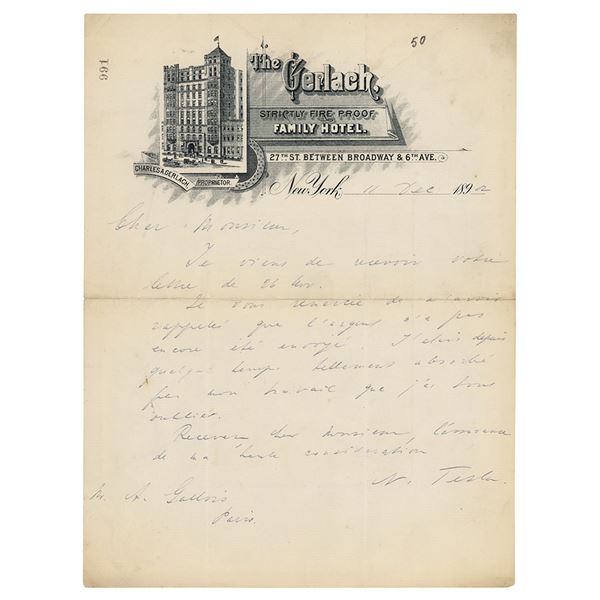 991
50
The Gerlach,
STRICTLY FIRE PROOF
FAMILY HOTEL.
27TH ST. BETWEEN BROADWAY & 6TH AVE.
CHARLES A. GERLACH
PROPRIETOR.
New York 11 Dec 1892
Cher Monsieur,
Je viens de recevoir votre
lettre de 26 Nov.
Je vous remercie de m'avoir
rappelé que l'argent n'a pas
encore été envoyé. J'étais depuis
quelque temps tellement absorbé
par mon travail que j'ai tout
oublié.
Recevez cher Monsieur, l'assurance
de ma haute consideration
N. Tesla.
Mr. A. Gallois
Paris.